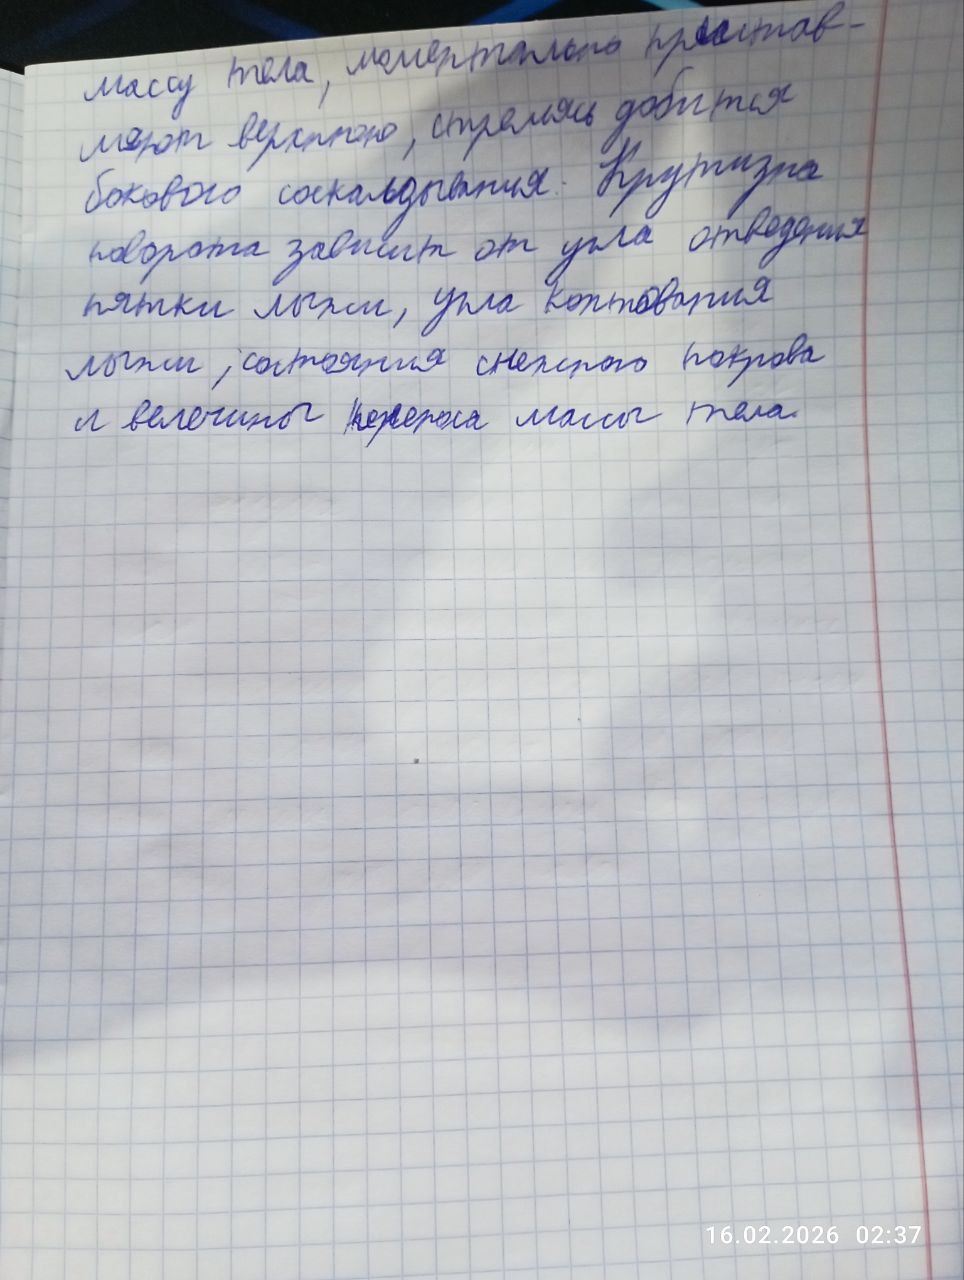 массу тела, моментально пристав-
ляют верхнюю, стремясь добится
бокового соскальзывания. Крутизна
поворота зависит от угла отведения
пятки лыжи, угла кантования
лыжи, состояния снежного покрова
и величины переноса массы тела.
16.02.2026 02:37